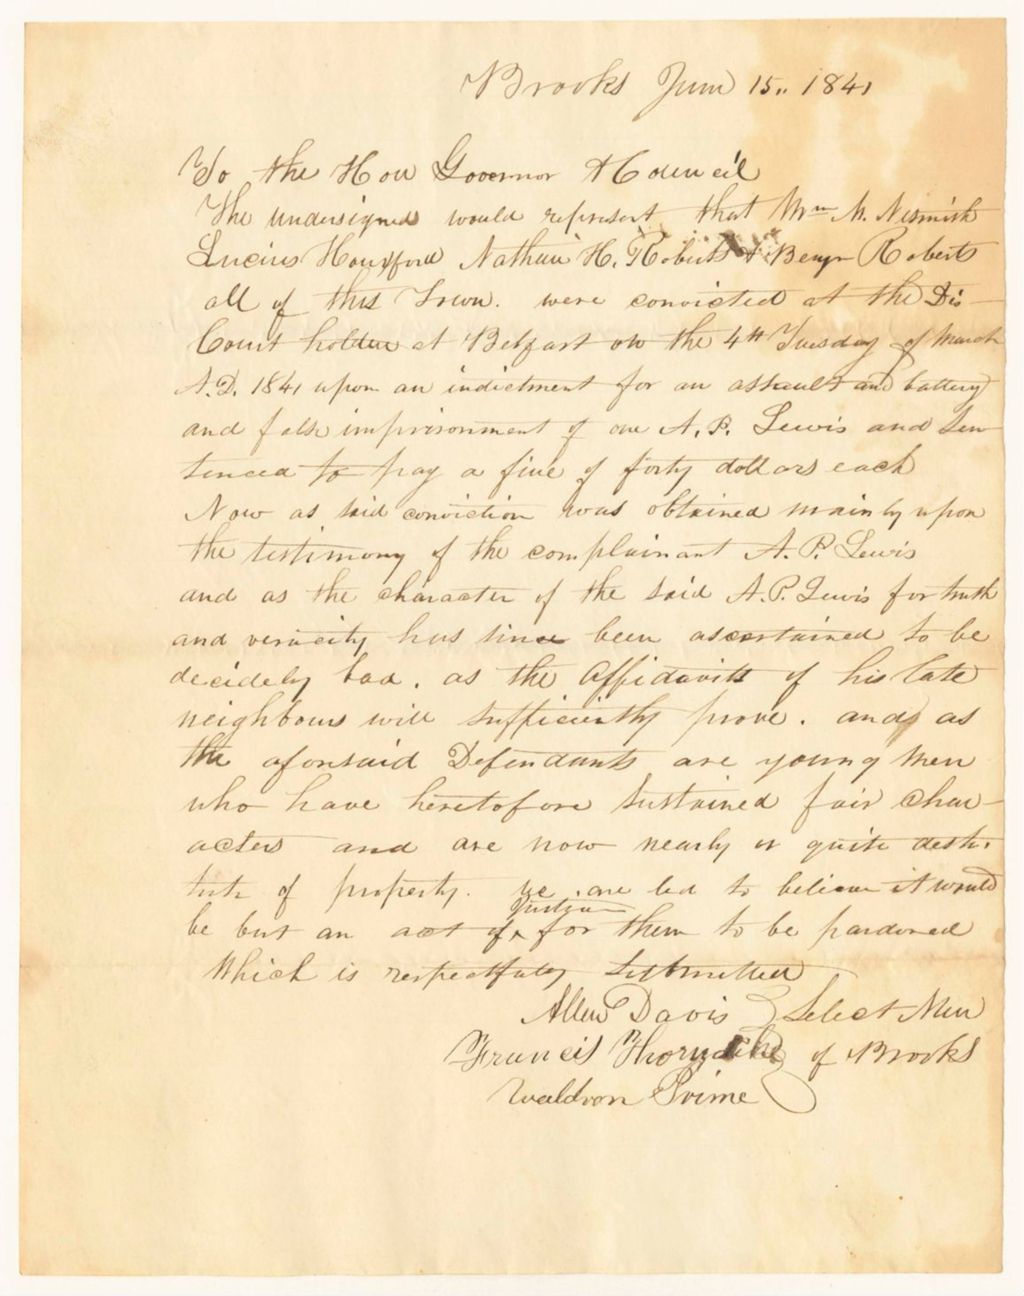 Brooks June 15. 1841
To the Hon Governor & Council
The undersigned would represent that Wm M. Nesmith
Lucius Nathan H. Roberts & Benjn Roberts
all of this Town. were convicted at the Dis-
Court holden at Belfast on the 4th Tuesday of March
A.D. 1841 upon an indictment for an assault and battery
and false imprisonment of one A. P. Lewis and Sen
tenced to pay a fine of forty dollars each
Now as said conviction was obtained mainly upon
the testimony of the complainant A. P. Lewis
and as the character of the said A. P. Lewis for truth
and veracity has since been ascertained to be
decidely bad. as the affidavits of his late
neighbours will sufficiently prove. and as
the aforesaid Defendants are young men
who have heretofore sustained fair char-
acters and are now nearly or quite desti
tute of property. we are led to believe it would
be but an act of ^ justice for them to be pardoned
Which is respectfuly Submitted
Allen Davis } Select Men
Francis Thorndike } of Brooks
Waldron Prime